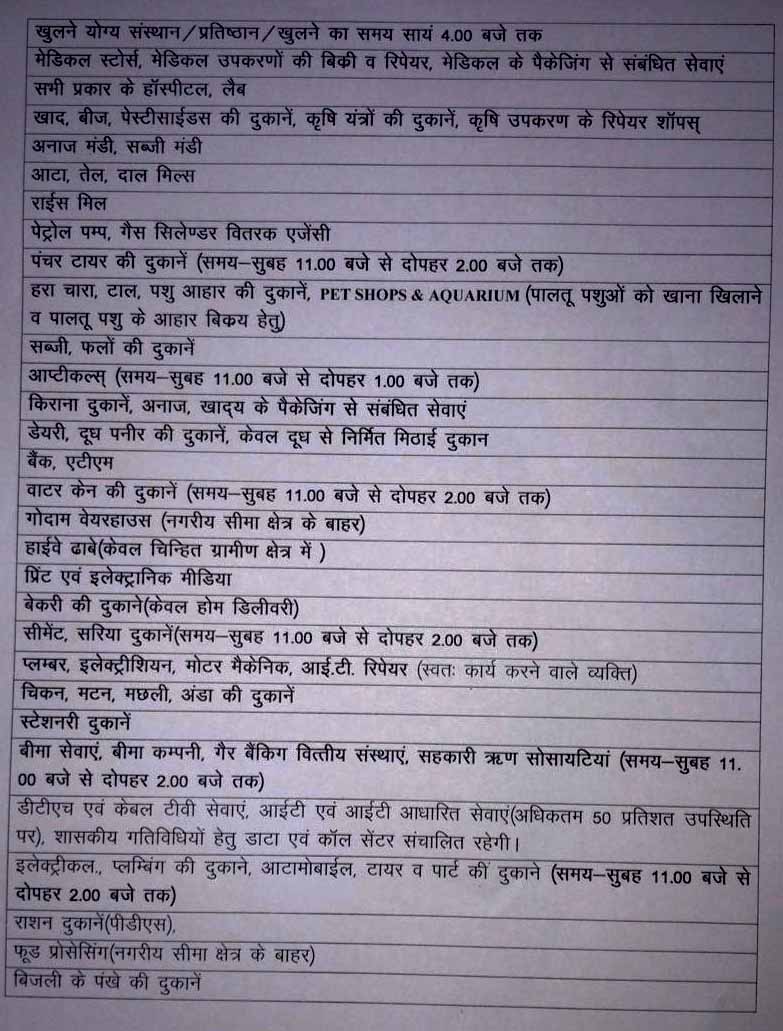 खुलने योग्य संस्थान/प्रतिष्ठान/खुलने का समय सायं 4.00 बजे तक
मेडिकल स्टोर्स, मेडिकल उपकरणों की बिकी व रिपेयर, मेडिकल के पैकेजिंग से संबंधित सेवाएं
सभी प्रकार के हॉस्पीटल, लैब
खाद, बीज, पेस्टीसाईडस की दुकानें, कृषि यंत्रों की दुकानें, कृषि उपकरण के रिपेयर शॉपस्
अनाज मंडी, सब्जी मंडी
आटा, तेल, दाल मिल्स
राईस मिल
पेट्रोल पम्प, गैस सिलेण्डर वितरक एजेंसी
पंचर टायर की दुकानें (समय–सुबह 11.00 बजे से दोपहर 2.00 बजे तक)
हरा चारा, टाल, पशु आहार की दुकानें, PET SHOPS & AQUARIUM (पालतू पशुओं को खाना खिलाने
व पालतू पशु के आहार बिकय हेतु)
सब्जी, फलों की दुकानें
आप्टीकल्स् (समय–सुबह 11.00 बजे से दोपहर 1.00 बजे तक)
किराना दुकानें, अनाज, खाद्य के पैकेजिंग से संबंधित सेवाएं
डेयरी, दूध पनीर की दुकानें, केवल दूध से निर्मित मिठाई दुकान
बैंक, एटीएम
वाटर केन की दुकानें (समय–सुबह 11.00 बजे से दोपहर 2.00 बजे तक)
गोदाम वेयरहाउस (नगरीय सीमा क्षेत्र के बाहर)
हाईवे ढाबे(केवल चिन्हित ग्रामीण क्षेत्र में )
प्रिंट एवं इलेक्ट्रानिक मीडिया
बेकरी की दुकाने(केवल होम डिलीवरी)
सीमेंट, सरिया दुकानें(समय–सुबह 11.00 बजे से दोपहर 2.00 बजे तक)
प्लम्बर, इलेक्ट्रीशियन, मोटर मैकेनिक, आई.टी. रिपेयर (स्वतः कार्य करने वाले व्यक्ति)
चिकन, मटन, मछली, अंडा की दुकानें
स्टेशनरी दुकानें
बीमा सेवाएं, बीमा कम्पनी, गैर बैंकिग वित्तीय संस्थाएं, सहकारी ऋण सोसायटियां (समय–सुबह 11.
00 बजे से दोपहर 2.00 बजे तक)
डीटीएच एवं केबल टीवी सेवाएं, आईटी एवं आईटी आधारित सेवाएं(अधिकतम 50 प्रतिशत उपस्थिति
पर), शासकीय गतिविधियों हेतु डाटा एवं कॉल सेंटर संचालित रहेगी।
इलेक्ट्रीकल., प्लम्बिंग की दुकाने, आटामोबाईल, टायर व पार्ट की दुकाने (समय–सुबह 11.00 बजे से
दोपहर 2.00 बजे तक)
राशन दुकानें(पीडीएस),
फूड प्रोसेसिंग(नगरीय सीमा क्षेत्र के बाहर)
बिजली के पंखे की दुकानें